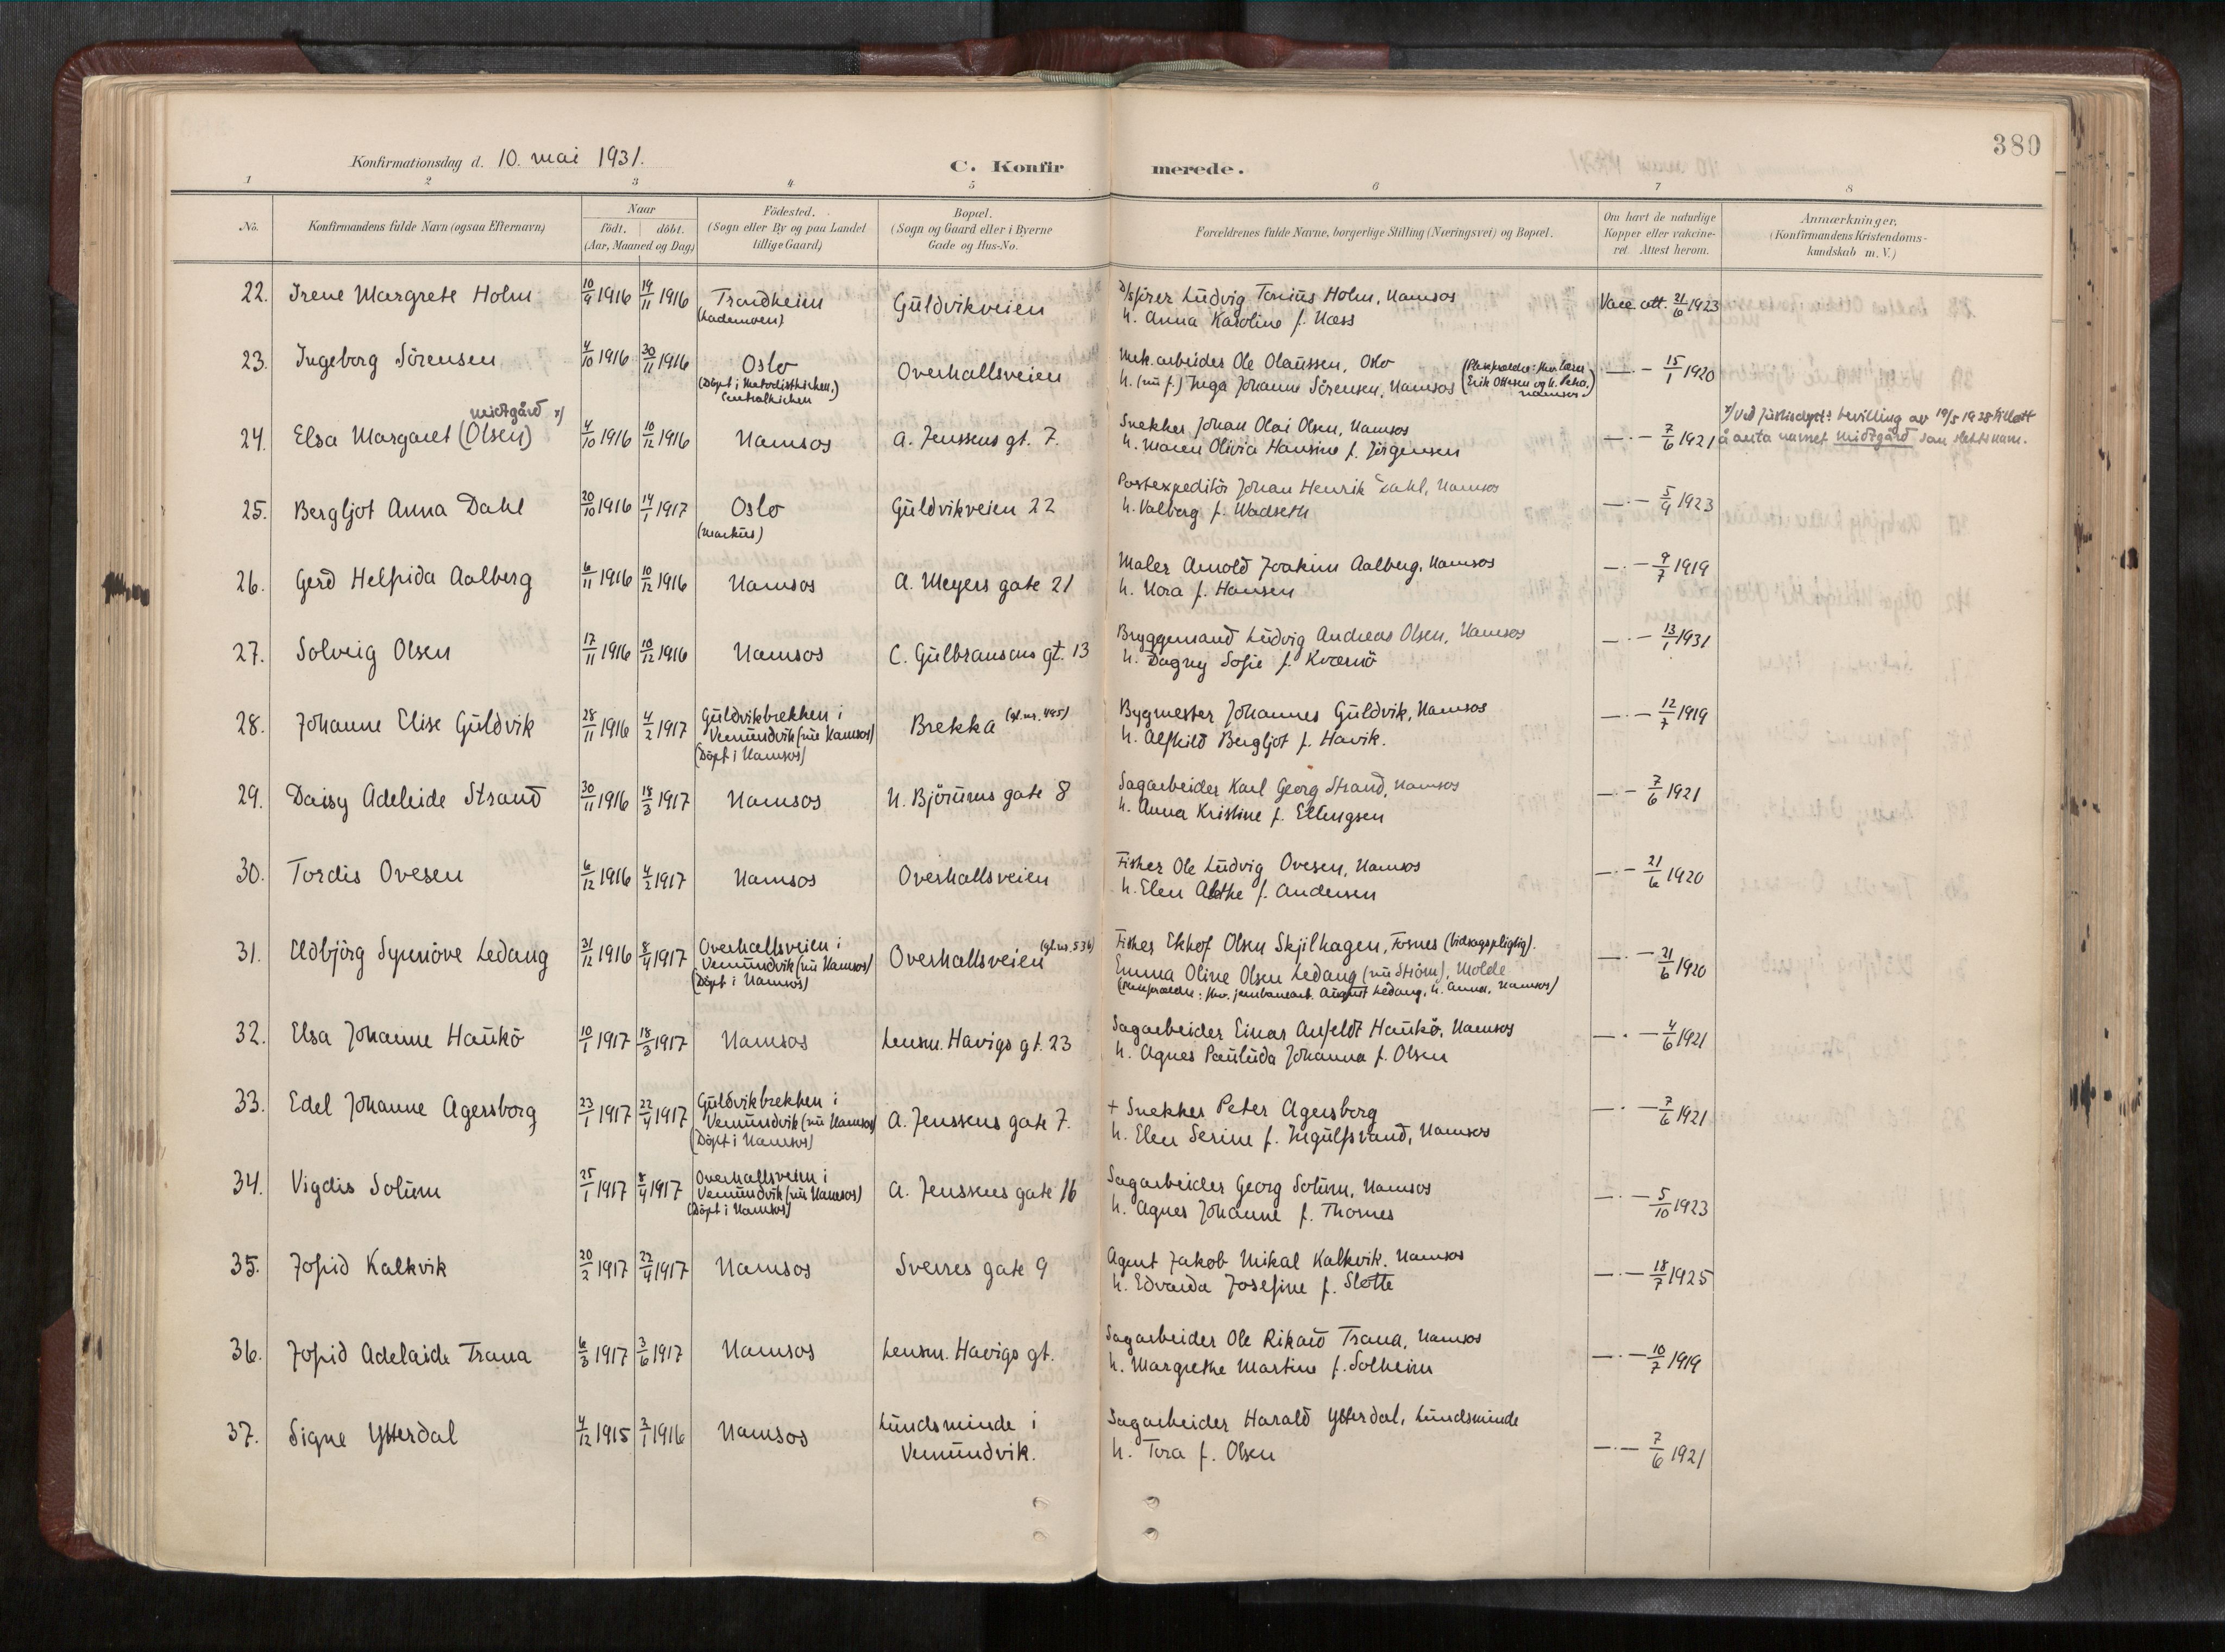 380
Konfirmationsdag d. 10. mai 1931.
C. Konfirmerede.
1 2 3 4 5 6 7 8
No.
Konfirmandens fulde Navn (ogsaa Efternavn)
Naar
födt. döbt.
(Aar, Maaned og Dag)
Födested.
(Sogn eller By og paa Landet
tillige Gaard)
Bopæl.
(Sogn og Gaard eller i Byerne
Gade og Hus-No.
Forældrenes fulde Navne, borgerlige Stilling (Næringsvei) og Bopæl.
Om havt de naturlige
Kopper eller vakcine-
ret. Attest herom.
Anmærkninger.
(Konfirmandens Kristendoms-
kundskab m. V.)
22. Irene Margrete Holm 10/9 1916 19/11 1916 Trondheim Guldvikveien D/s fører Ludvig Tonius Holm, Namsos Vacc. att. 21/6 1923
(Lademoen) h. Anna Karoline f. Næss
23. Ingeborg Sörensen 4/10 1916 30/11 1916 Oslo Overhallsveien Mek. arbeider Ole Olaussen, Oslo — 15/1 1920
(Döpt i Metodistkirken,) h. (nu f.) Inga Johanne Sörensen, Namsos
Centralkirken
Erik Ottesen og h. Petra,
Namsos
midtgård x)
24. Elsa Margaret (Olsen) 4/10 1916 10/12 1916 Namsos A. Jenssens gt. 7. Snekker Johan Olai Olsen, Namsos — 7/6 1921
h. Maren Olivia Hansine f. Jörgensen
x) Ved Justisdept's bevilling av 19/5 1928 tillatt
å anta navnet Midtgård som slektsnavn.
25. Bergljot Anna Dahl 20/10 1916 14/1 1917 Oslo Guldvikveien 22 Postexpeditör Johan Henrik Dahl, Namsos — 5/9 1923
(Markus) h. Valborg f. Wadseth
26. Gerd Helfrida Aalberg 6/11 1916 10/12 1916 Namsos A. Meyers gate 21 Maler Arnold Joakim Aalberg, Namsos — 9/7 1919
h. Nora f. Hansen
27. Solveig Olsen 17/11 1916 10/12 1916 Namsos C. Gulbransens gt. 13 Bryggemand Ludvig Andreas Olsen, Namsos — 13/1 1931
h. Dagny Sofie f. Kværnö
28. Johanne Elise Guldvik 28/11 1916 4/2 1917 Guldvikbrekken i Brekka (gl. nr. 495) Bygmester Johannes Guldvik, Namsos — 12/7 1919
Vemundvik (nu Namsos) h. Alfhild Bergljot f. Havik.
(Döpt i Namsos)
29. Daisy Adeleide Strand 30/11 1916 18/3 1917 Namsos N. Björums gate 8 Sagarbeider Karl Georg Strand, Namsos — 7/6 1921
h. Anna Kristine f. Ellingsen
30. Tordis Ovesen 6/12 1916 4/2 1917 Namsos Overhallsveien Fisker Ole Ludvig Ovesen, Namsos — 21/6 1920
h. Elen f. Andersen
31. Eldbjörg Synnöve Ledang 31/12 1916 8/4 1917 Overhallsveien i Overhallsveien (gl. nr. 536) Fisker Ekhof Olsen Skjilhagen, Fosnes (bidragspligtig). — 21/6 1920
Vemundvik (nu Namsos) Emma Oline Olsen Ledang (nu Ström), Molde
(Döpt i Namsos) (Pleieforældre: fhv. jernbanearb. August Ledang, h. Anna, Namsos)
32. Elsa Johanne Haukö 10/1 1917 18/3 1917 Namsos Lensm. Havigs gt. 23 Sagarbeider Einar Anfeldt Haukö, Namsos — 4/6 1921
h. Agnes Paulida Johanna f. Olsen
33. Edel Johanne Agersborg 23/1 1917 22/4 1917 Guldvikbrekken i A. Jenssens gate 7. + Snekker Peter Agersborg — 7/6 1921
Vemundvik (nu Namsos) h. Elen Serine f. Ingulfsvand, Namsos
(Döpt i Namsos)
34. Vigdis Solum 25/1 1917 8/4 1917 Overhallsveien i A. Jenssens gate 16 Sagarbeider Georg Solum, Namsos — 5/10 1923
Vemundvik (nu Namsos) h. Agnes Johanne f. Thornes
(Döpt i Namsos)
35. Jofrid Kalkvik 20/2 1917 22/4 1917 Namsos Sverres gate 9 Agent Jakob Mikal Kalkvik, Namsos — 18/7 1925
h. Edvarda Josefine f. Slotte
36. Jofrid Adelaide Trana 6/3 1917 3/6 1917 Namsos Lensm. Havigs gt. Sagarbeider Ole Rikard Trana, Namsos — 10/7 1919
h. Margrethe Martine f. Solheim
37. Signe Ytterdal 4/12 1915 2/1 1916 Namsos Lundsminde i Sagarbeider Harald Ytterdal, Lundsminde — 7/6 1921
Vemundvik. h. Tora f. Olsen